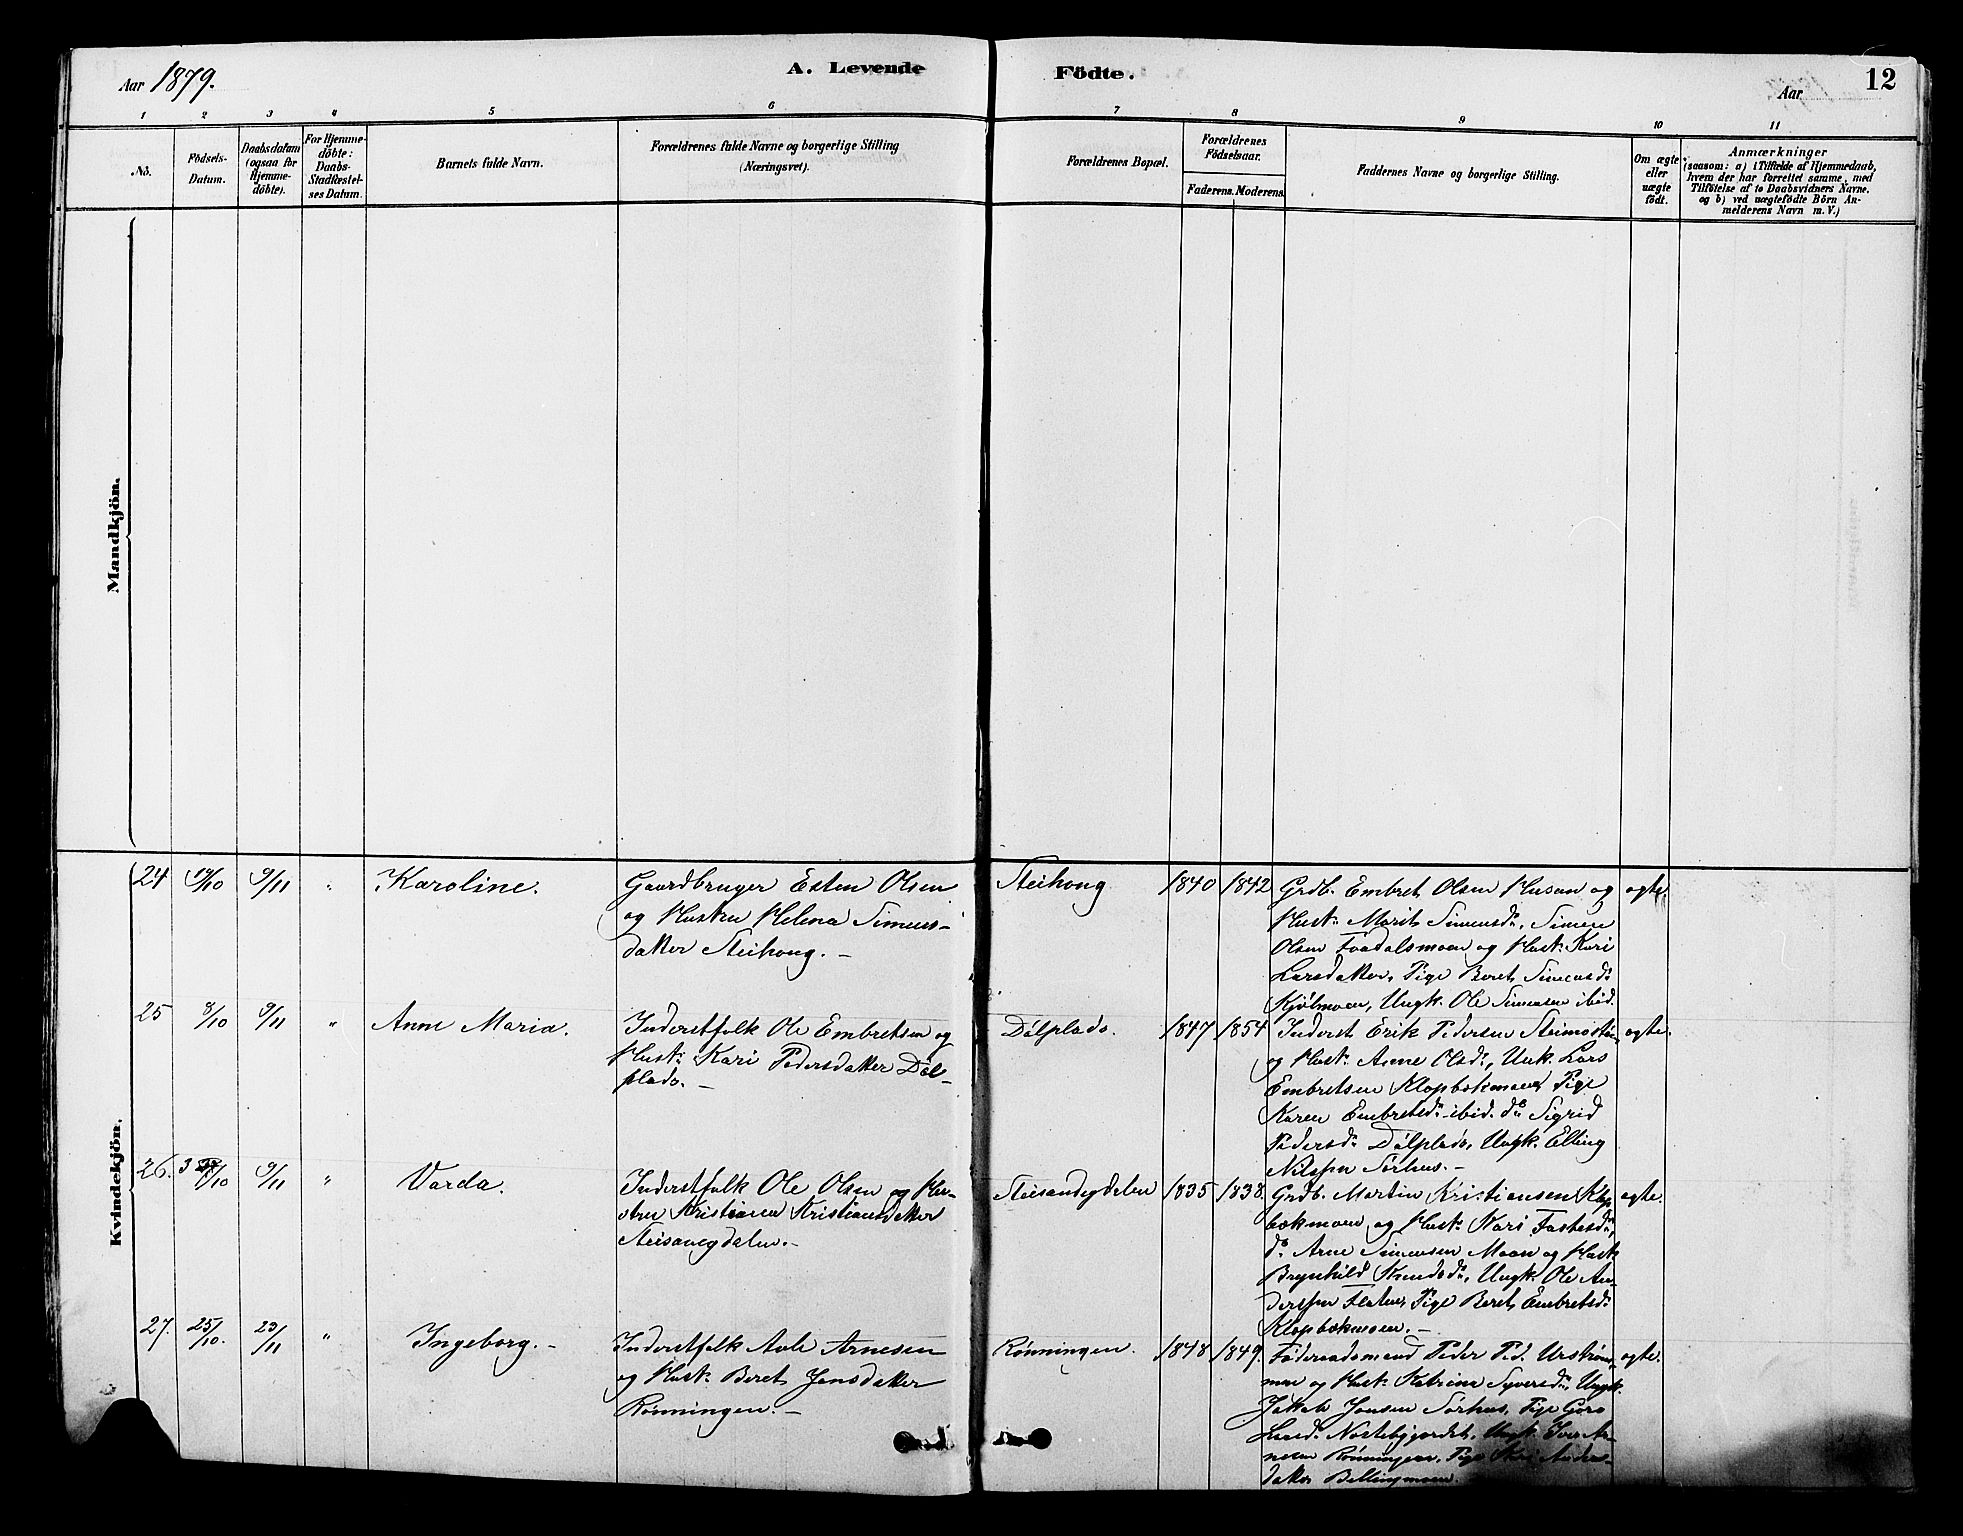 Aar 1879.
A. Levende Födte.
Aar
12
1 2 3 4 5 6 7 8 9 10 11
No.
Födsels-
Datum.
Daabsdatum
(ogsaa for
Hjemme-
döbte).
For Hjemme-
döbte:
Daabs-
Stadfæstel-
ses Datum.
Barnets fulde Navn.
Forældrenes fulde Navne og borgerlige Stilling
(Næringsvei).
Forældrenes Bopæl.
Forældrenes
Födselsaar.
Faderens. Moderens.
Faddernes Navne og borgerlige Stilling.
Om ægte
eller
uægte
födt.
Anmærkninger
(saasom: a) i Tilfælde af Hjemmedaab,
hvem der har forrettet samme, med
Tilföielse af to Daabsvidners Navne.
og b) ved uægtefödte Börn An-
melderens Navn m.V.)
Mandkjön.
Kvindekjön.
24 19/10 9/11 " Karoline.
Gaardbruger Esten Olsen
og Hustru Helena Simens-
datter Steihong. -
Steihong 1840 1842
Grdb. Embret Olsen Husan og
Hust. Marit Simensd., Simen
Olsen Foadalsmoen og Hust. Kari
Larsdatter, Pige Beret Simensd.
Kjølmoen, Ungk. Ole Simensen ibid.
ægte.
25 8/10 9/11 " Anne Maria.
Inderstfolk Ole Embretsen og
Hust. Kari Pedersdatter Døl-
plads. -
Dølplads. 1847 1854
Inderst Erik Pedersen
og Hust. Anne Olsd., Unk. Lars
Embretsen Klopbækmoen, Pige
Karen Embretsd. ibid. do Sigrid
Pedersd. Dølplads, Ungk. Elling
Nilssen Sørhus. -
ægte.
26. 3/10 9/11 " Varda.
Inderstfolk Ole Olsen og Hu-
stru Kristiane Kristiansdatter
Steisanegdalen. -
1835 1838.
Grdb. Martin Kristiansen Klop-
bækmoen og Hust. Kari
do. Arne Simensen Moan og Hust.
Brynhild Knudsd., Ungk. Ole An-
derssen Floten, Pige Beret Embretsd.
Klopbækmoen. -
ægte.
27. 25/10. 23/11 " Ingeborg. -
Inderstfolk Arne Arnesen
og Hust. Beret Jonsdatter
Rønningen. -
Rønningen. 1848 1849.
Føderaadsmand Peder Ped. Urstrøm-
men og Hust. Katrine Syversd., Ungk.
Jakob Jonsen Sørhus, Pige Goro
Nordebygardet, Ungk. Iver Ar-
nesen Rønningen, Pige Anders-
datter Bellingmoen.
ægte.